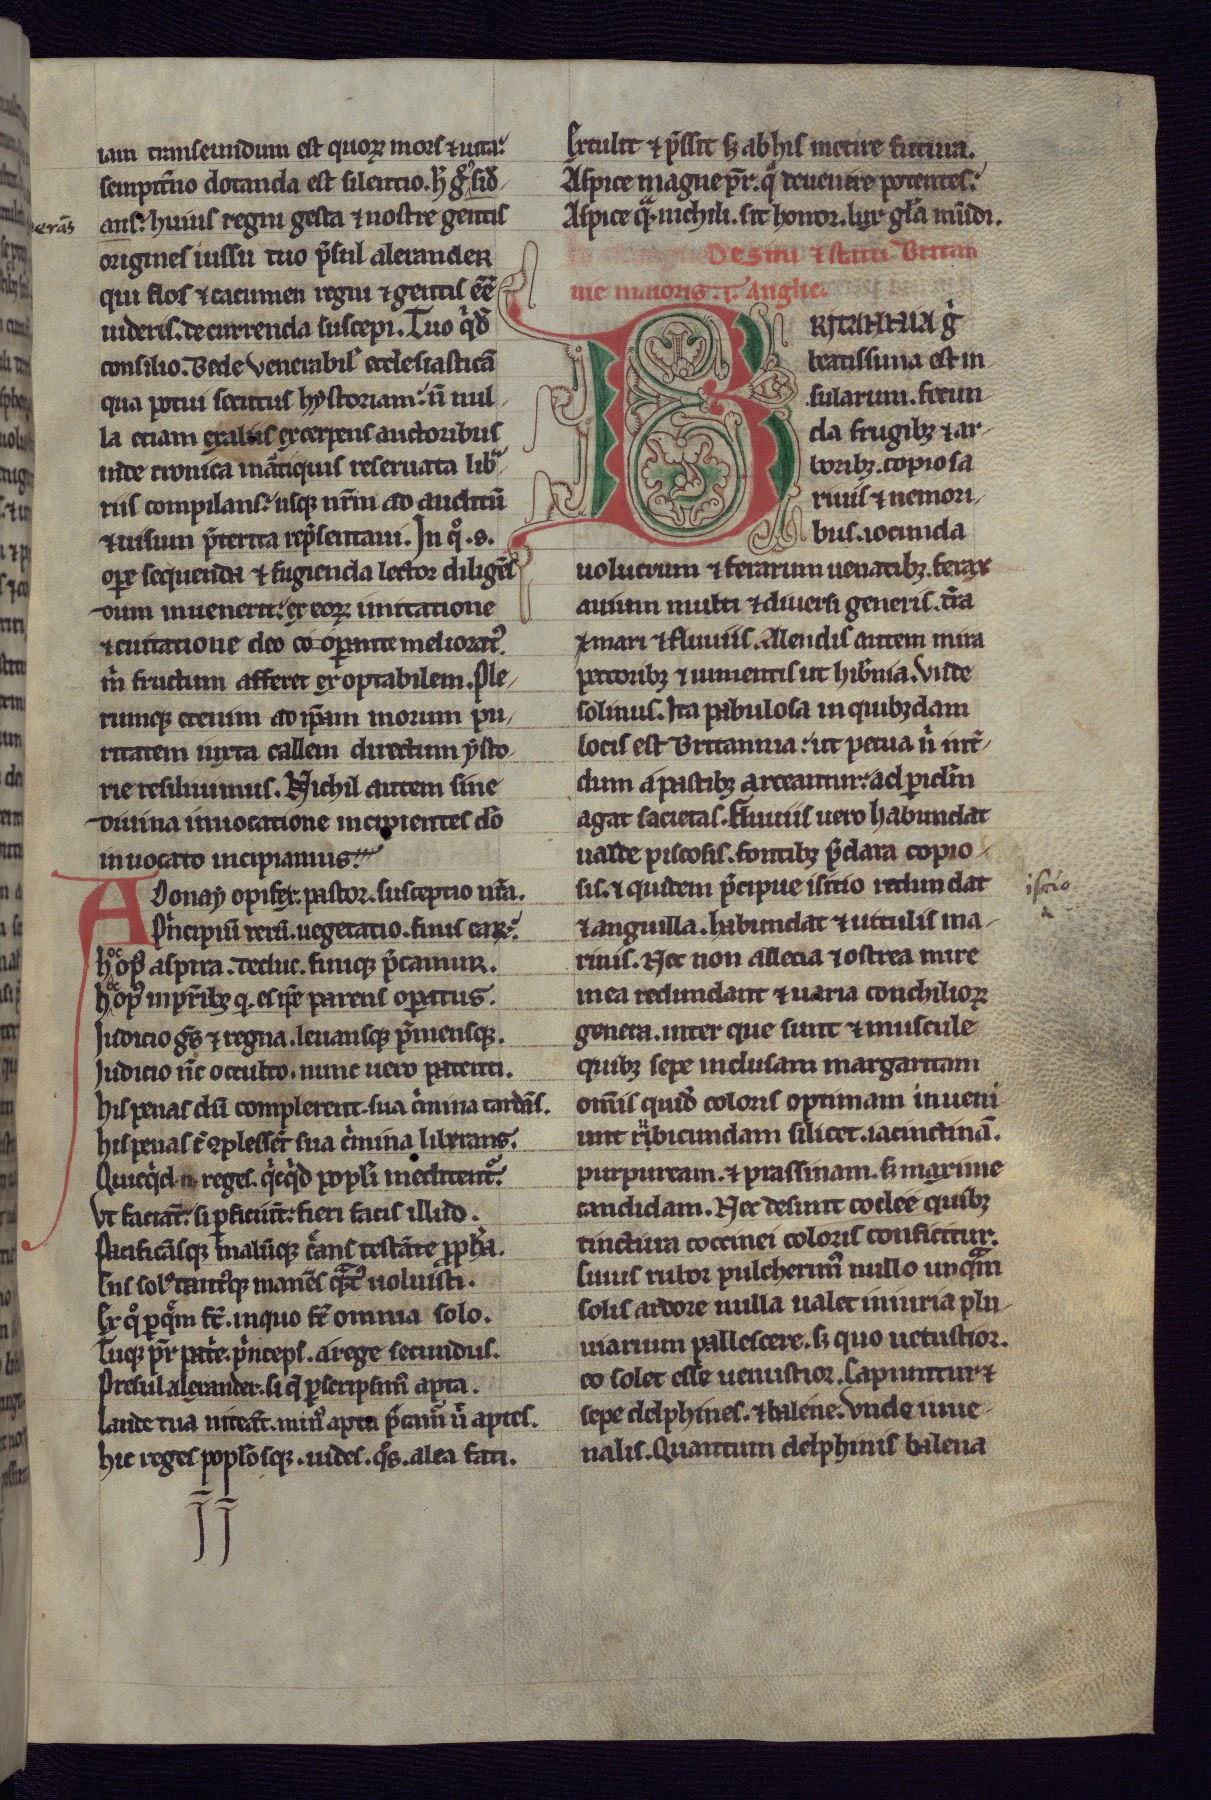 iam transeundum est quorꝝ mors ⁊ uita
sempit̄no dotanda est silentio. h̄ gͦ ↄsid̾
ans. huius regni gesta ⁊ nostre gentis
origines iussu tuo p̄sul alexander
qui flos ⁊ cacumen regni ⁊ gentis eē
uideris. decurrenda suscepi. Tuo qͥdē
consilio. Bede venerabilˀ ecclesiasticā
qua potui secutus hystoriam. ń nul-
la etiam ex aliis excerpens auctoribus
inde cronica in ātiquis reseruata lib̾-
riis compilans. usqꝫ nr̄m ad auditū
⁊ uisum p̄terita rep̄sentaui. In qͦ .s.
oꝑe sequenda ⁊ fugienda lector diligēt̾
dum inuenerit. ex eorꝝ imitatione
⁊ euitatione deo cooꝑante meliorat᷒.
m̄ fructum afferet exoptabilem. Ple-
rumqꝫ etenim ad ip̄am morum pu-
ritatem iuxta callem directum ysto-
rie resiliuimus. Nichil autem sine
diuina inuocatione incipientes dō
inuocato incipiamus.
Adonay opifex. pastor. susceptio nr̄a.
Pͥncipiū rerū. uegetatio. finis earꝝ.
hͦ opꝰ aspira. deduc. finiqꝫ p̄camur.
hͦc opꝰ in pr̄ibꝫ q. es ip̄e parens oꝑatus.
Iudicio gͤs ⁊ regna. leuansqꝫ p̄mensqꝫ.
Iudicio nc̄ occulto. nunc uero patenti.
his penas cū complerent sua cͥmina tardās.
his penas cū ↄplessēt sua cͥmina liberans.
Quicqͥd reges. qͥcqͥd popl̓i meditentᷣ.
Vt faciāt. si ꝑficiūt. fieri facis illud.
Pacificāsqꝫ malūqꝫ cͤans testāte ꝓphͣa.
Ens solꝰ tantūqꝫ manēs
Ex qͦ ꝑ qͦm st̄. in quo st̄ omnia solo.
Tuqꝫ pr̄ patͥe. pͥnceps. a rege secundus.
Presul alexander. si qͣ ꝑscripsimꝰ apta.
Laude tua niteāt. minꝰ apta p̄camᷣ ū aptes.
hic reges poplosqꝫ. uides. qͦs. alea fati.
Extulit ⁊ p̄ssit sꝫ ab his metire futura.
Aspice magne pr̄. qͦ deuenere potentes.
Aspice qͣ. nichili. sit honor. lux gl̄a mūdi.
De situ ⁊ statu Britan
nie maioris .i. Anglie.
BRITANNIA gͥ
beatissima est in
sularum. fecun-
da frugibꝫ ⁊ ar-
boribꝫ. copiosa
riuis ⁊ nemori-
bus. iocunda
uolucrum ⁊ ferarum uenatibꝫ. ferax
auium multi ⁊ diuersi generis. t̄ra
⁊ mari ⁊ fluuiis. Alendis autem mira
pecoribꝫ ⁊ iumentis ut hib̄nia. Vnde
solinus. Ita pabulosa in quibꝫdam
locis est Britannia. ut pecua ń int̄-
dum a pastibꝫ arceantur. ad ꝑiclm̄
agat sacietas. Fluuiis uero habundat
ualde piscosis. fontibꝫ p̄clara copio-
sis. ⁊ quidem p̄cipue isitio redundat
⁊ anguilla. habundat ⁊ uitulis ma-
rinis. Nec non allecia ⁊ ostrea mire
in ea redundant ⁊ uaria conchiliorꝝ
genera. inter que sunt ⁊ muscule
quibꝫ sepe inclusam margaritam
omīs quid̾ coloris optimam inueni
unt rubicundam silicet. iacinctinā.
purpuream. ⁊ prassinam. sꝫ maxime
candidam. Nec desunt coclee quibꝫ
tinctura coccinei coloris conficitur.
Cuius rubor pulcherimꝰ nullo unqͣm
solis ardore nulla ualet iniuria plu-
uiarum pallescere. sꝫ quo uetustior.
eo solet esse uenustior. Capiuntur ⁊
sepe delphines. ⁊ balene. Vnde iuue-
nalis. Quantum delphinis balena
isicio
II